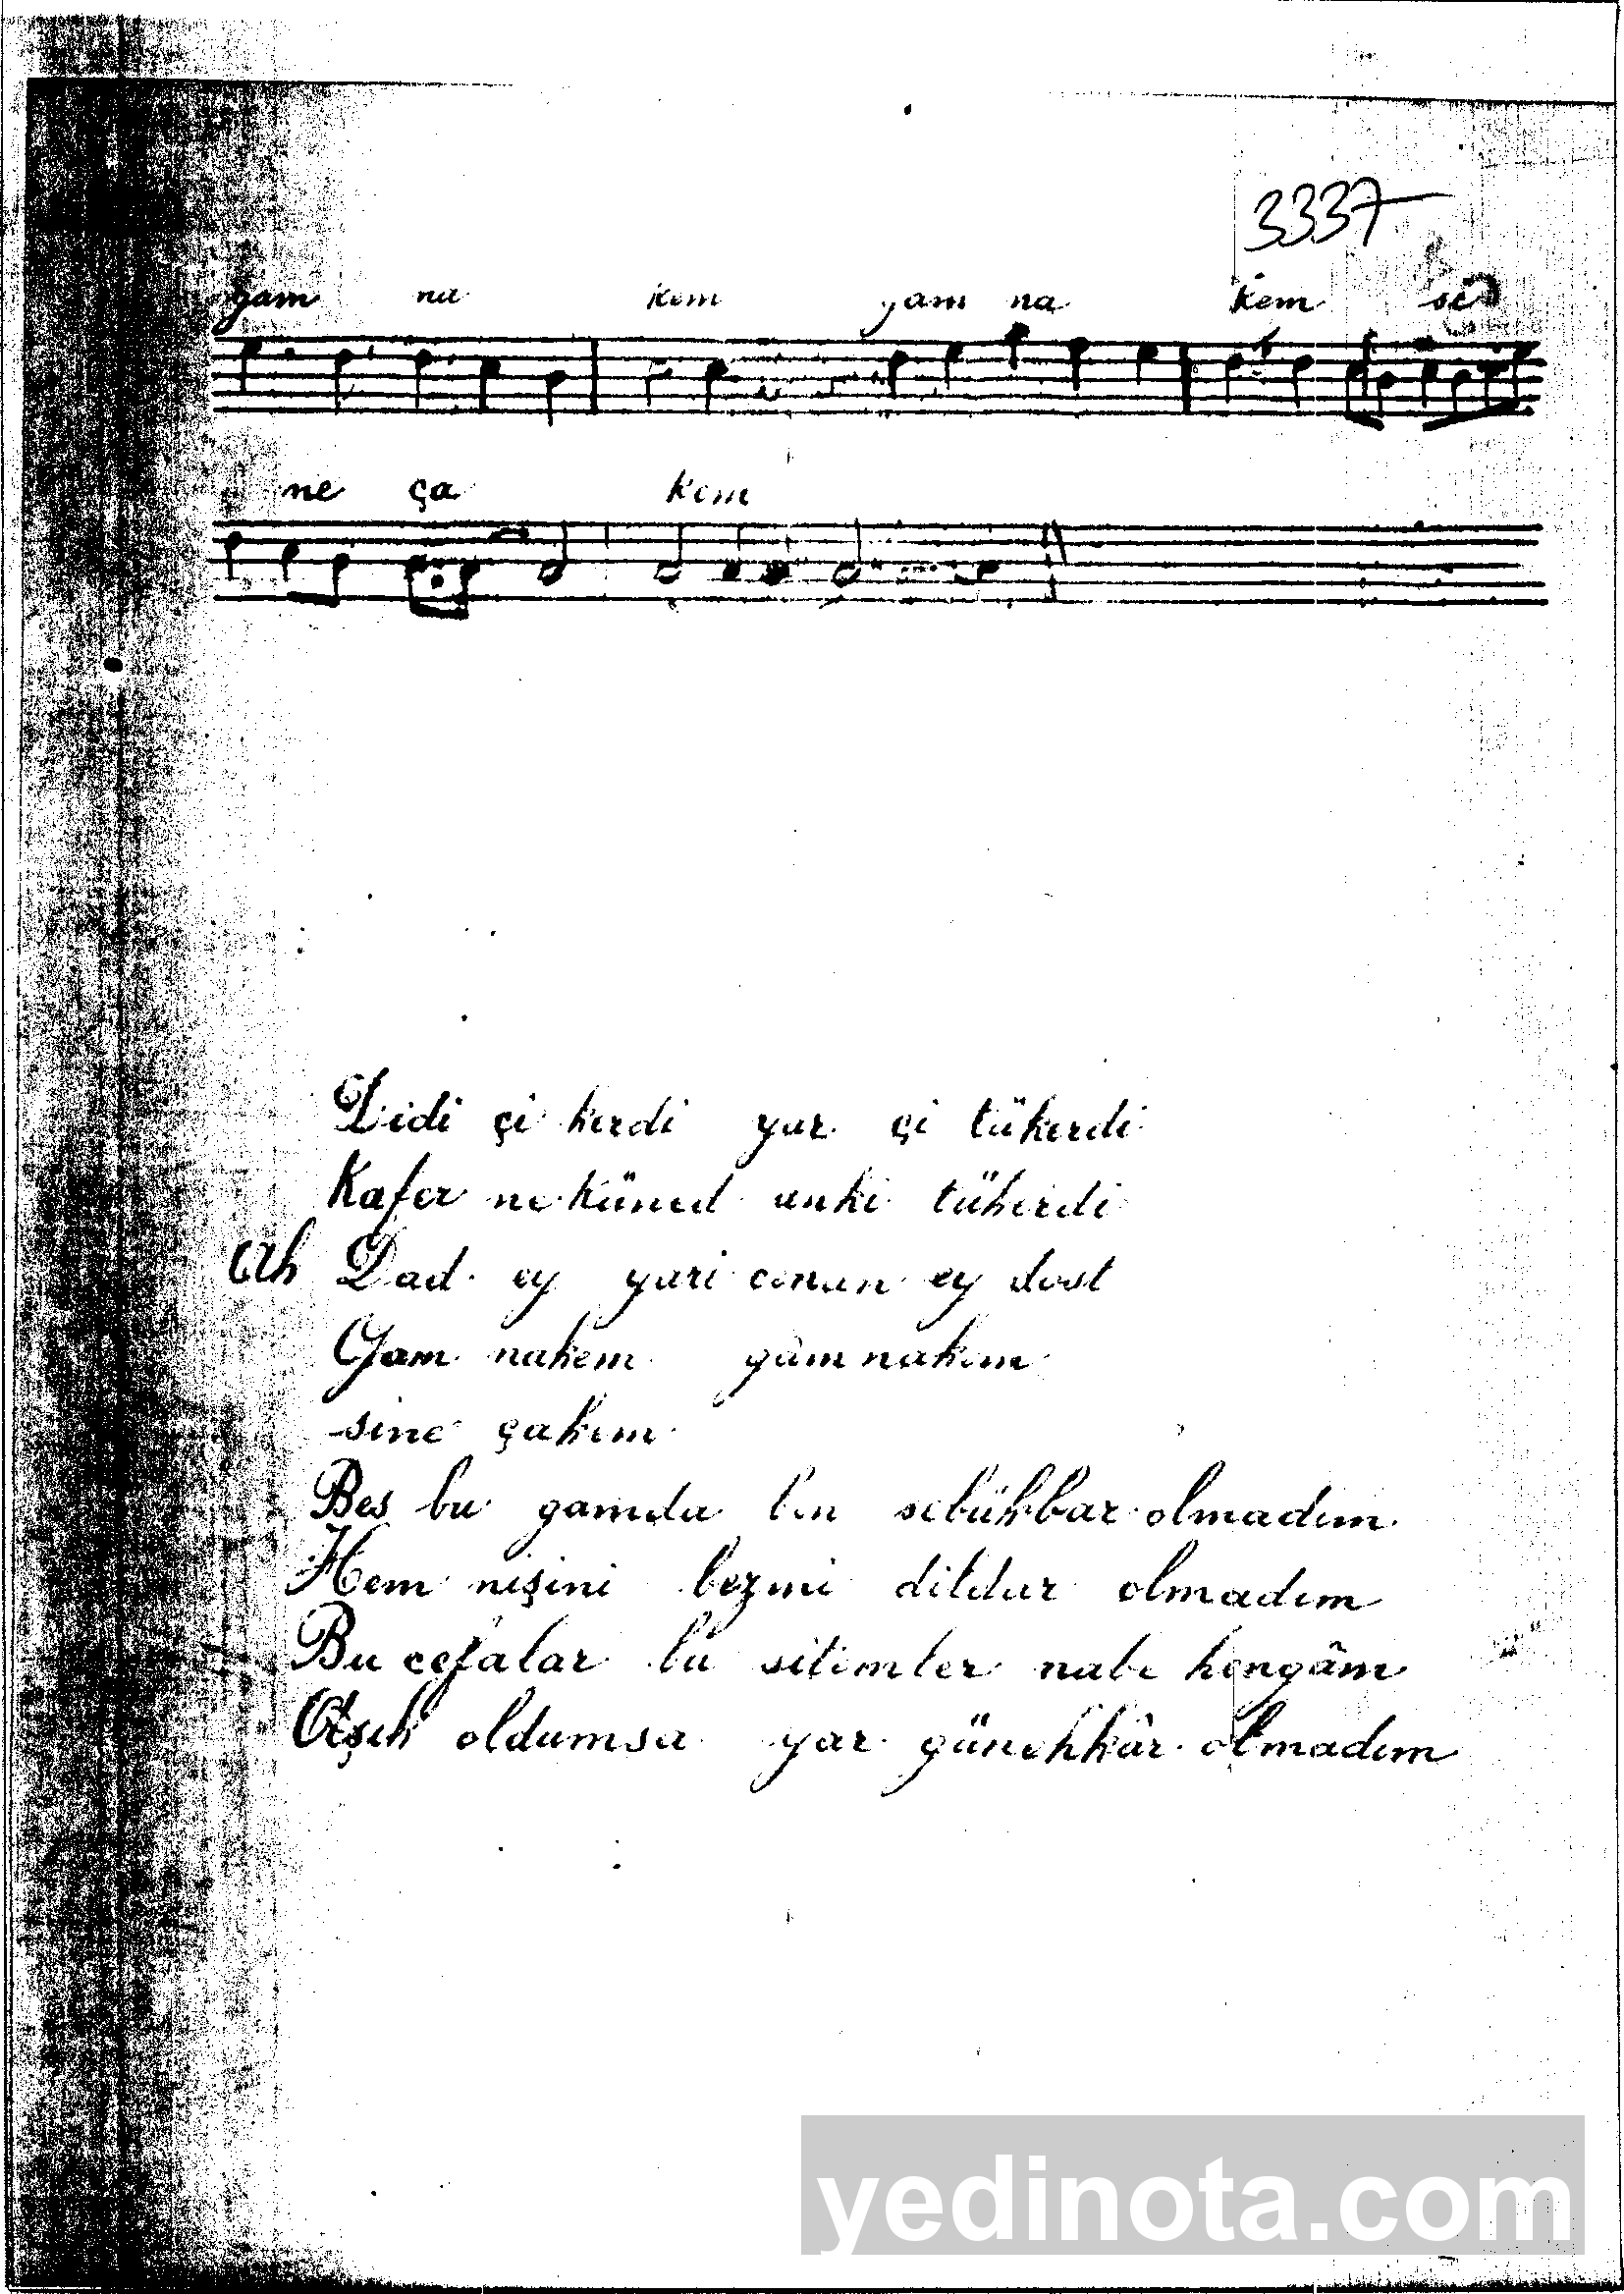 3337
gam na kem gam na kem si
ne ça kem
Didi çi kerdi yar çi tükerdi
Kafer ne küned anki tükerdi
Ah Dad ey yari canan ey dost
Gam nakem gam nakem
sine çakem
Bes bu gamda ben sebükbar olmadım
Hem nişini bezmi dildar olmadım
Bu cefalar bu sitemler nabe hengâm
Aşık oldumsa yar günehkâr olmadım
yedinota.com